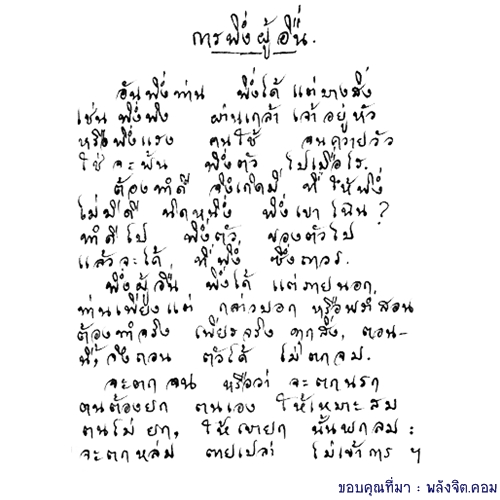 การพึ่งผู้อื่น.
อันพึ่งท่าน พึ่งได้ แต่บางสิ่ง
เช่นพึ่งพิง ผ่านเกล้า เจ้าอยู่หัว
หรือพึ่งแรง คนใช้ จนควายวัว
ใช่จะพ้น พึ่งตัว ไปเมื่อไร.
ต้องทำดี จึงเกิดมี ที่ให้พึ่ง
ไม่มีดี นิดหนึ่ง พึ่งเขาไฉน?
ทำดีไป พึ่งตัว ของตัวไป
แล้วจะได้ ที่พึ่ง ซึ่งถาวร.
พึ่งผู้อื่น พึ่งได้ แต่ภายนอก,
ท่านเพียงแต่ กล่าวบอก หรือพร่ำสอน
ต้องทำจริง เพียรจริง ทุกสิ่ง, ตอน-
นี้, จึงถอน ตัวได้ ไม่ตกจม.
จะตกจน หรือว่า จะตกนรก
ตนต้องยก ตนเอง ให้เหมาะสม
ตนไม่ยก, ให้เขายก นั้นพกลม:
จะตกหล่ม ตายเปล่า ไม่เข้าการ ฯ
ขอบคุณที่มา : พลังจิต.คอม